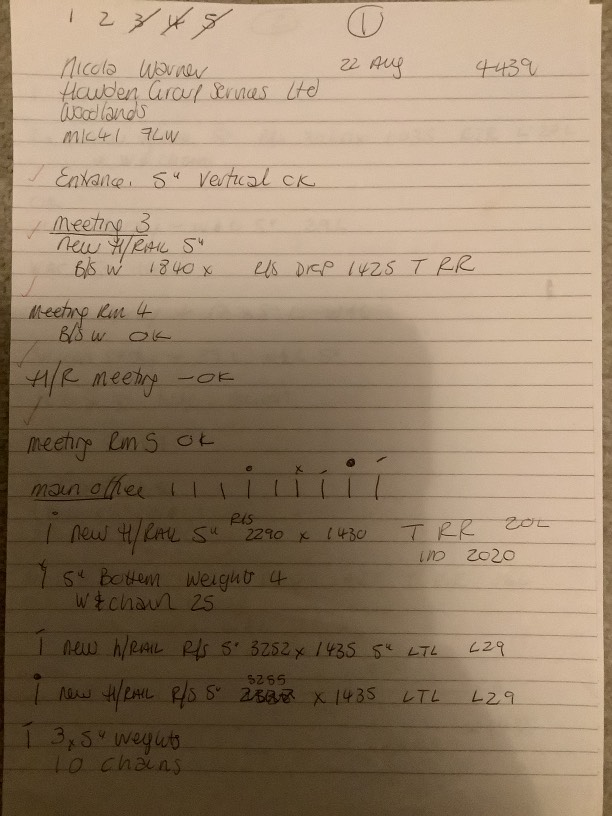 1 2 3 4 5 1
Nicola Warner 22 Aug 4439
Howden Group Services Ltd
Woodlands
MK41 7LW
Entrance. 5" Vertical OK
Meeting 3
new H/RAIL 5"
B/S W 1840 x R/S DROP 1425 T RR
Meeting Rm 4
B/S W OK
H/R meeting - OK
meeting Rm 5 OK
main office
new H/RAIL 5" R/S 2290 x 1430 T RR 20L
IND 2020
5" Bottom Weights 4
W & chain 25
new h/RAIL R/S 5" 3252 x 1435 5" LTL L29
new H/RAIL R/S 5" 3255 x 1435 LTL L29
3 x 5" weights
10 chains